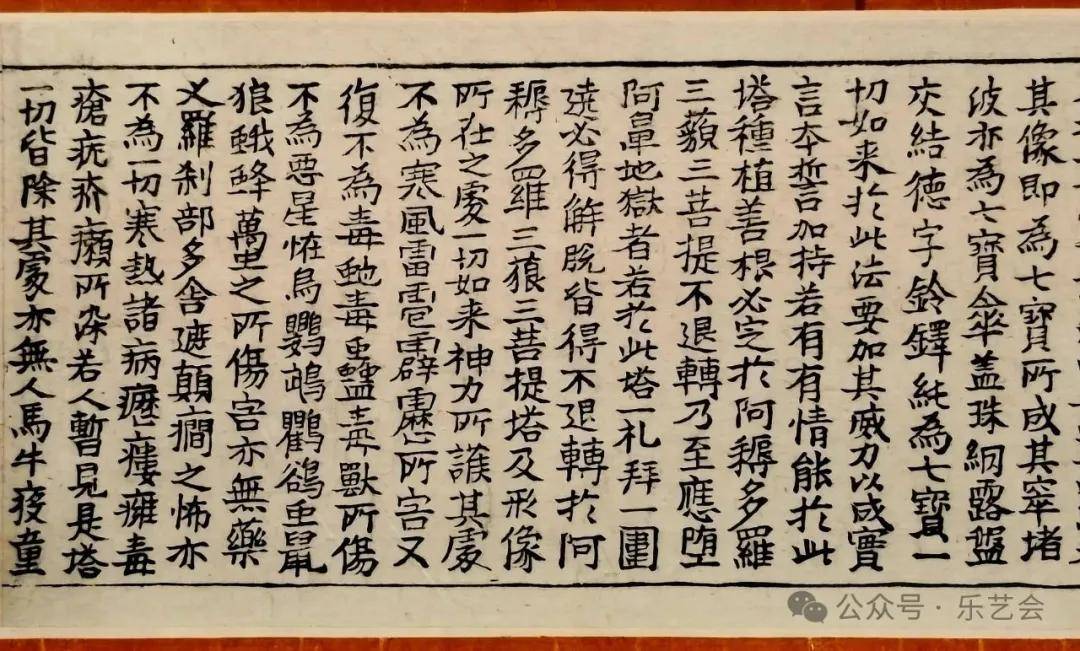 其像即為七寶所成其窣堵
波亦為七寶傘盖珠網露盤
交結德字鈴鐸純為七寶一
切如来於此法要加其威力以成實
言本誓言加持若有有情能於此
塔種植善根必定於阿耨多羅
三藐三菩提不退轉乃至應堕
阿鼻地獄者若於此塔一礼拜一圍
遶必得解脱皆得不退轉於阿
耨多羅三藐三菩提塔及形像
所在之處一切如来神力所護其處
不為寒風雷雹霹靂所害又
復不為毒虵毒虫蠱毒獸所傷
不為惡星恠鳥鸚鵡鸜鵒虫鼠
狼蛾蜂蠆之所傷害亦無藥
叉羅刹部多舍遮顛癎之怖亦
不為一切寒熱諸病癧瘻癰毒
瘡疣疥癩所染若人暫見是塔
一切皆除其處亦無人馬牛疫童
公众号·乐艺会